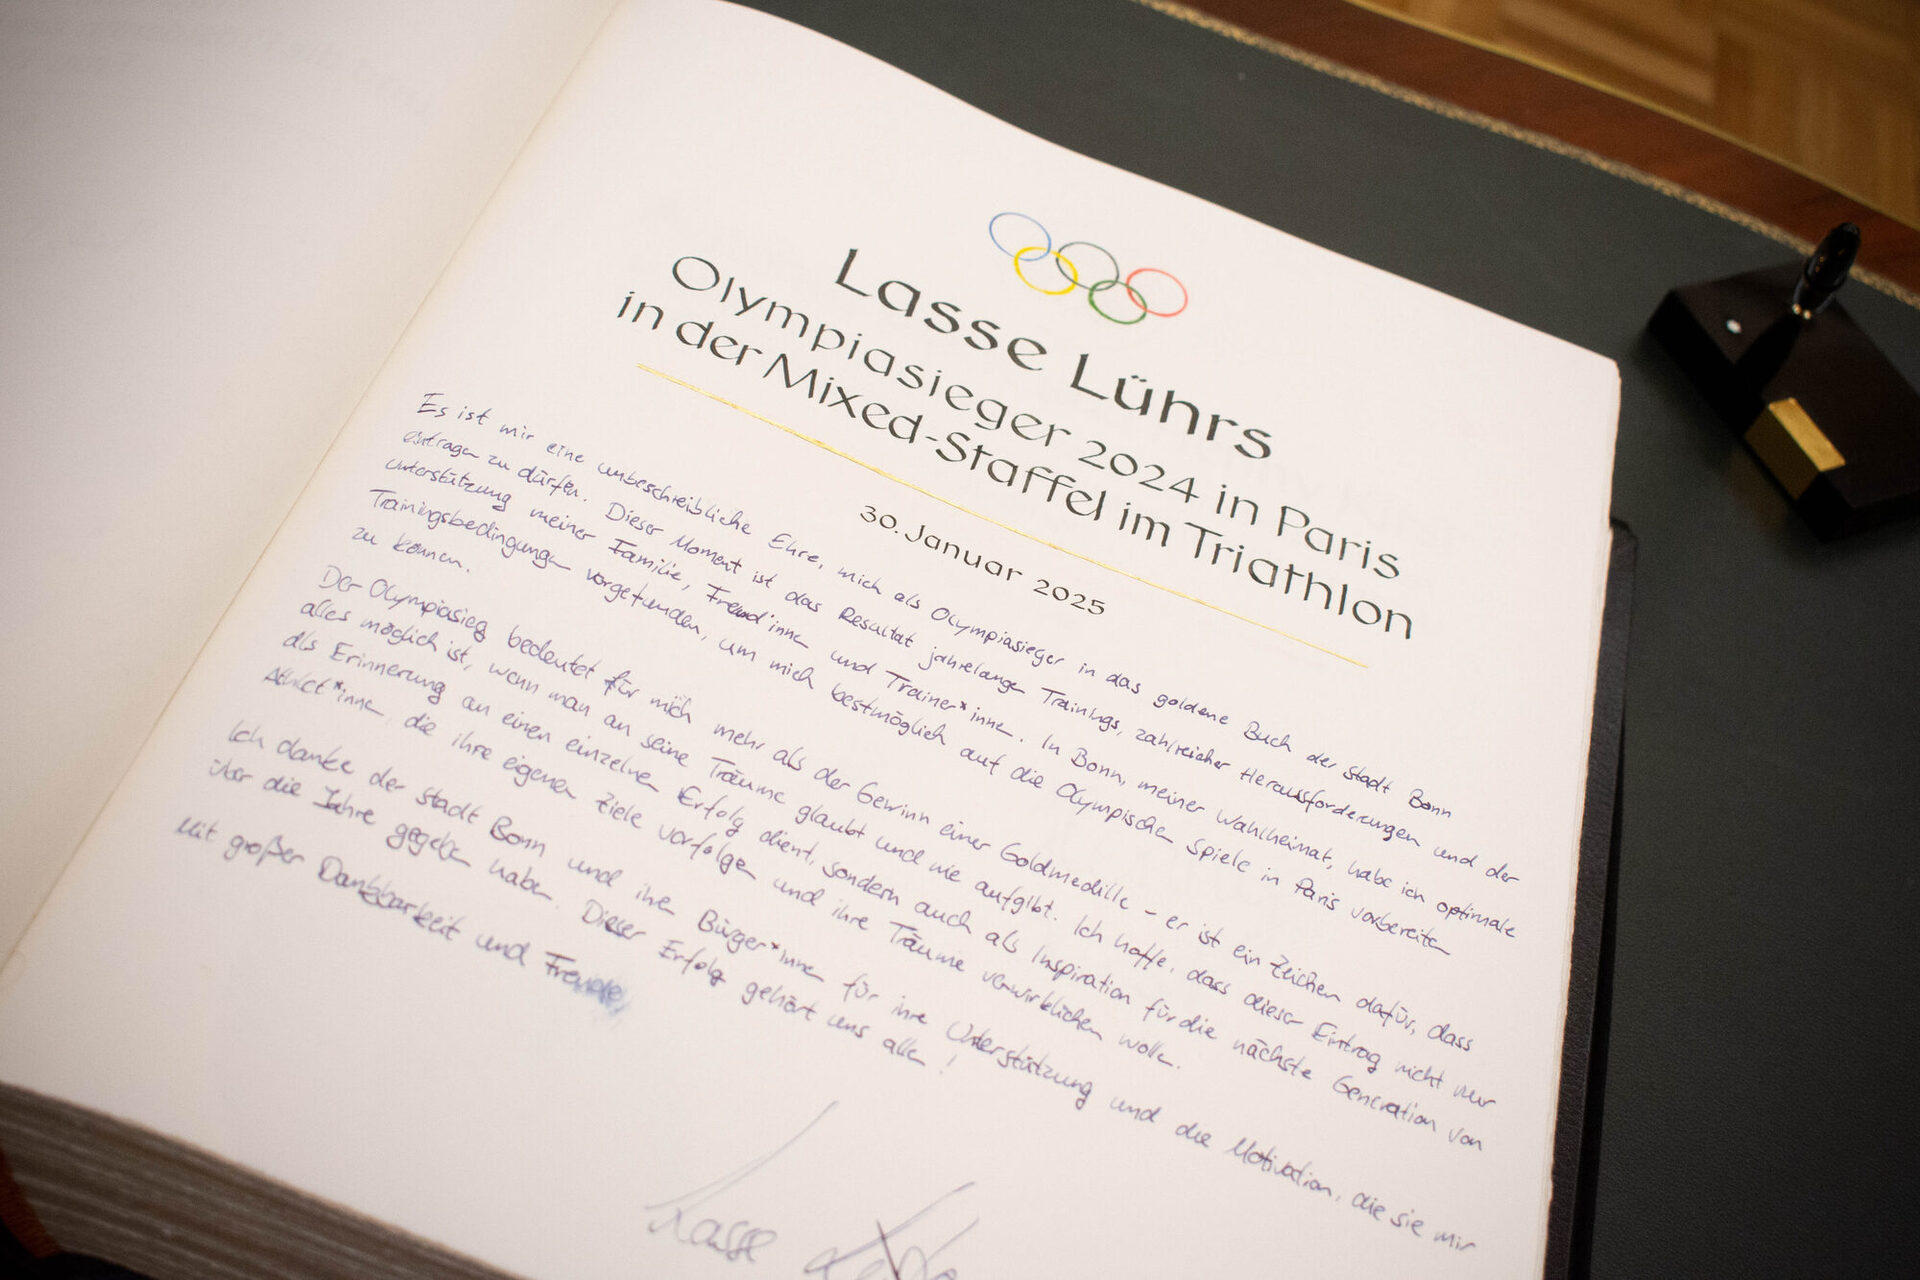 Lasse Lührs
Olympiasieger 2024 in Paris
in der Mixed-Staffel im Triathlon
30. Januar 2025
Es ist mir eine unbeschreibliche Ehre, mich als Olympiasieger in das goldene Buch der Stadt Bonn
eintragen zu dürfen. Dieser Moment ist das Resultat jahrelangen Trainings, zahlreicher Herausforderungen und der
Unterstützung meiner Familie, Freund*innen und Trainer*innen. In Bonn, meiner Wahlheimat, habe ich optimale
Trainingsbedingungen vorgefunden, um mich bestmöglich auf die Olympischen Spiele in Paris vorbereiten
zu können.
Der Olympiasieg bedeutet für mich mehr als der Gewinn einer Goldmedaille - er ist ein Zeichen dafür, dass
alles möglich ist, wenn man an seine Träume glaubt und nie aufgibt. Ich hoffe, dass dieser Eintrag nicht nur
als Erinnerung an einen einzelnen Erfolg dient, sondern auch als Inspiration für die nächste Generation von
Athlet*innen, die ihre eigenen Ziele verfolgen und ihre Träume verwirklichen wollen.
Ich danke der Stadt Bonn und ihren Bürger*innen für ihre Unterstützung und die Motivation, die sie mir
über die Jahre gegeben haben. Dieser Erfolg gehört uns allen!
Mit großer Dankbarkeit und Freude,
Lasse